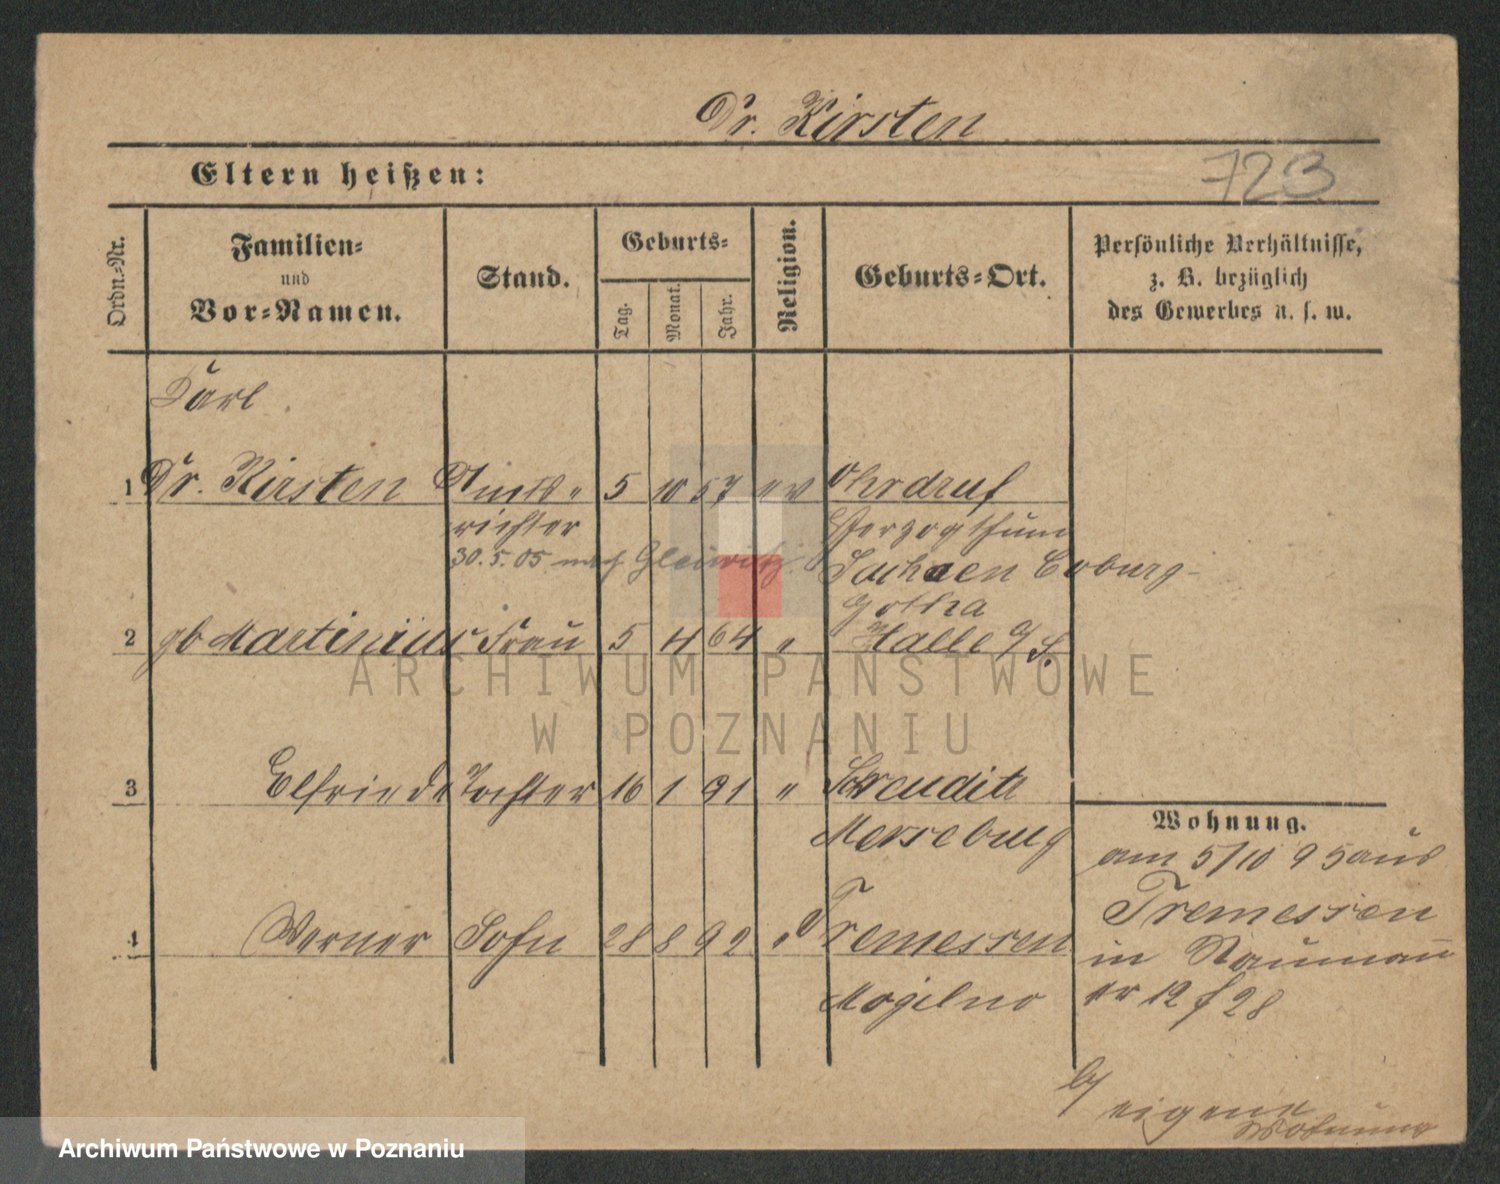 Dr. Kirsten
Eltern heißen:
723
Ordn.-Nr.
Familien-
und
Vor-Namen.
Stand.
Geburts-
Tag.
Monat.
Jahr.
Religion.
Geburts-Ort.
Persönliche Verhältnisse,
z. B. bezüglich
des Gewerbes u. s. w.
Carl
1 Dr. Kirsten Amts- 5 10 57 ev Ohrdruf
richter Herzogthum
30.5.05 nach Gleiwitz Sachsen Coburg-
Gotha
2 gb Martinius Frau 5 4 64 " Halle a/S.
ARCHIWUM PAŃSTWOWE
W POZNANIU
3 Elfriede Tochter 16 1 91 " Skeuditz
Merseburg
4 Werner Sohn 28 8 92 " Tremessen
Mogilno
Wohnung.
am 5/10 95 aus
Tremessen
in Naumann
str 12 f 28
b/ eigene
Wohnung
Archiwum Państwowe w Poznaniu